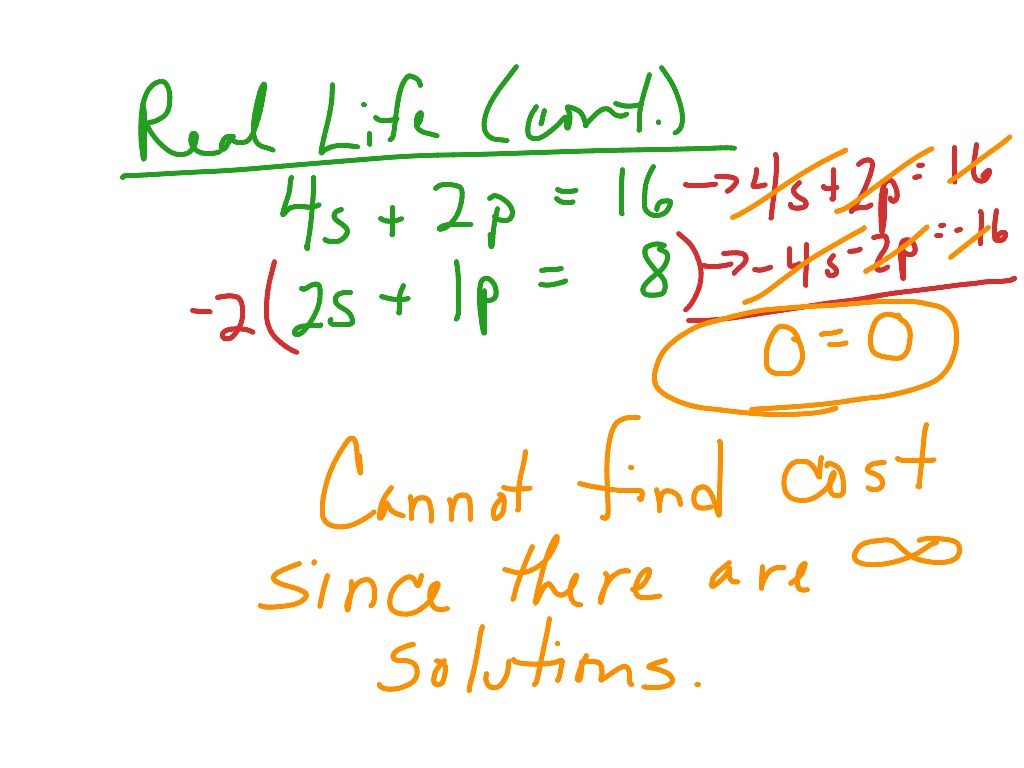 Real Life (cont.)
4s + 2p = 16 → 4s + 2p = 16
-2(2s + 1p = 8) → -4s - 2p = -16
0 = 0
Cannot find cost
since there are ∞
solutions.